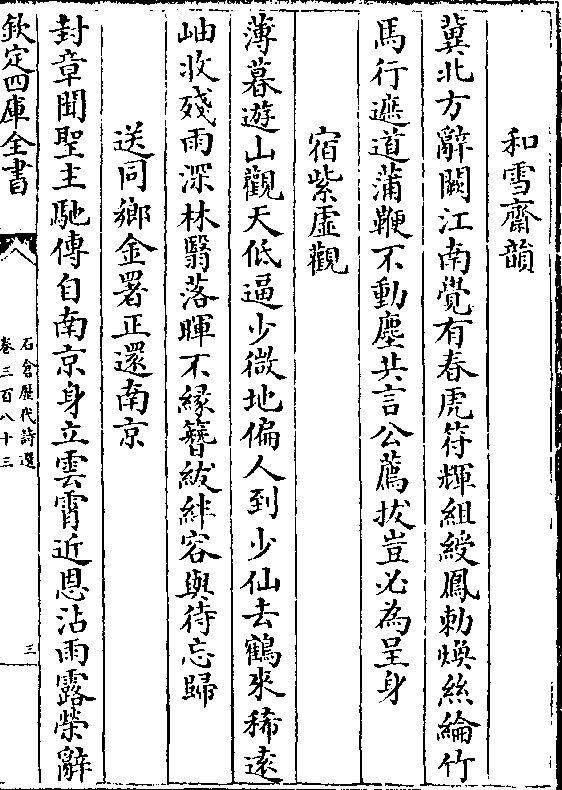 和雪齋韻
冀北方辭闕江南覺有春虎符輝組綬鳳勅煥絲綸竹
馬行遮道蒲鞭不動塵共言公薦拔豈必為呈身
宿紫虛觀
薄暮遊山觀天低逼少微地偏人到少仙去鶴來稀遠
岫收殘雨深林翳落暉不緣簪紱絆容與待忘歸
送同鄉金署正還南京
封章聞聖主馳傳自南京身立雲霄近恩沾雨露榮辭
欽定四庫全書
石倉歷代詩選
卷三百八十三
三